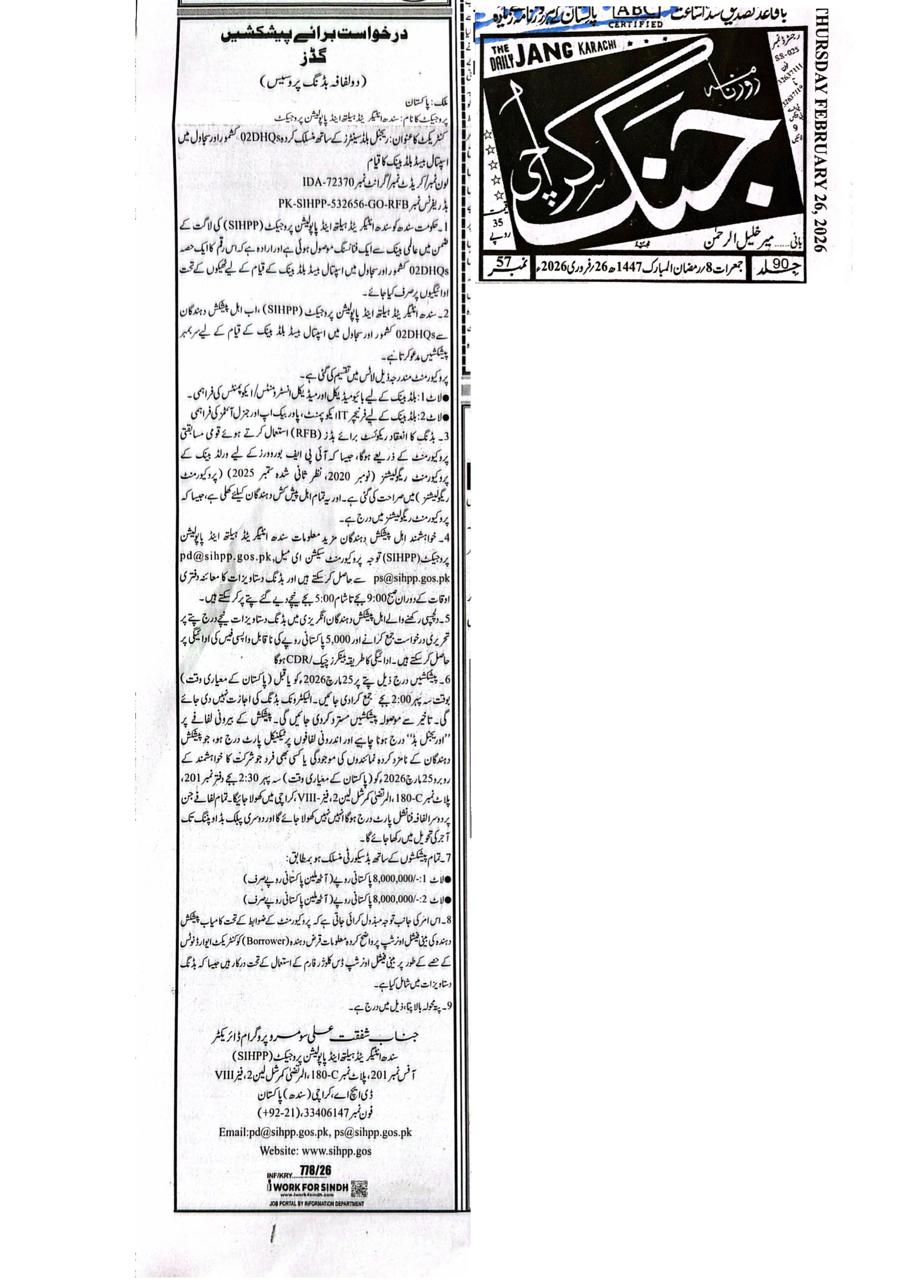 درخواست برائے پیشکشیں
گڈز
(دو لفافہ بڈنگ پروسیس)
ملک: پاکستان
پروجیکٹ کا نام: سندھ انٹیگریٹڈ ہیلتھ اینڈ پاپولیشن پروجیکٹ
کنٹریکٹ کا عنوان: ریجنل بلڈ سینٹرز کے ساتھ منسلک کردہ 02DHQs کشمور اور سجاول میں
اسپتال بیسڈ بلڈ بینک کا قیام
لون نمبر/کریڈٹ نمبر/گرانٹ نمبر IDA-72370
بڈ ریفرنس نمبر PK-SIHPP-532656-GO-RFB
1۔ حکومت سندھ کو سندھ انٹیگریٹڈ ہیلتھ اینڈ پاپولیشن پروجیکٹ (SIHPP) کی لاگت کے
ضمن میں عالمی بینک سے ایک فنانسنگ موصول ہوئی ہے اور ارادہ ہے کہ اس رقم کا ایک حصہ
02DHQs کشمور اور سجاول میں اسپتال بیسڈ بلڈ بینک کے قیام کے لیے ٹھیکوں کے تحت
ادائیگیوں پر صرف کیا جائے۔
2۔ سندھ انٹیگریٹڈ ہیلتھ اینڈ پاپولیشن پروجیکٹ (SIHPP)، اب اہل پیشکش دہندگان
سے 02DHQs کشمور اور سجاول میں اسپتال بیسڈ بلڈ بینک کے قیام کے لیے سربمہر
پیشکشیں مدعو کرتا ہے۔
پروکیورمنٹ مندرجہ ذیل لاٹس میں تقسیم کی گئی ہے۔
●لاٹ 1: بلڈ بینک کے لیے بائیو میڈیکل اور میڈیکل انسٹرومنٹس/ایکوپمنٹس کی فراہمی۔
●لاٹ 2: بلڈ بینک کے لیے فرنیچر IT ایکوپمنٹ، پاور بیک اپ اور جنرل آئٹمز کی فراہمی
3۔ بڈنگ کا انعقاد ریکوئسٹ برائے بڈز (RFB) استعمال کرتے ہوئے قومی مسابقتی
پروکیورمنٹ کے ذریعے ہوگا، جیسا کہ آئی پی ایف بوروورز کے لیے ورلڈ بینک کے
پروکیورمنٹ ریگولیشنز (نومبر 2020، نظر ثانی شدہ ستمبر 2025) (پروکیورمنٹ
ریگولیشنز) میں صراحت کی گئی ہے۔ اور یہ تمام اہل پیش کش دہندگان کیلئے کھلی ہے، جیسا کہ
پروکیورمنٹ ریگولیشنز میں درج ہے۔
4۔ خواہشمند اہل پیشکش دہندگان مزید معلومات سندھ انٹیگریٹڈ ہیلتھ اینڈ پاپولیشن
پروجیکٹ (SIHPP) توجہ پروکیورمنٹ سیکشن ای میل، pd@sihpp.gos.pk
ps@sihpp.gos.pk سے حاصل کر سکتے ہیں اور بڈنگ دستاویزات کا معائنہ دفتری
اوقات کے دوران صبح 9:00 بجے تا شام 5:00 بجے نیچے دیے گئے پتے پر کر سکتے ہیں۔
5۔ دلچسپی رکھنے والے اہل پیشکش دہندگان انگریزی میں بڈنگ دستاویزات نیچے درج پتے پر
تحریری درخواست جمع کرانے اور 5,000 پاکستانی روپے کی ناقابل واپسی فیس کی ادائیگی پر
حاصل کر سکتے ہیں۔ ادائیگی کا طریقہ بینکرز چیک/CDR ہوگا
6۔ پیشکشیں درج ذیل پتے پر 25 مارچ 2026ء کو یا قبل (پاکستان کے معیاری وقت)
بوقت سہ پہر 2:00 بجے جمع کرادی جائیں۔ الیکٹرونک بڈنگ کی اجازت نہیں دی جائے
گی۔ تاخیر سے موصولہ پیشکشیں مسترد کردی جائیں گی۔ پیشکش کے بیرونی لفافے پر
"اوریجنل بڈ" درج ہونا چاہیے اور اندرونی لفافوں پر ٹیکنیکل پارٹ درج ہو، جو پیشکش
دہندگان کے نامزد کردہ نمائندوں کی موجودگی یا کسی بھی فرد جو شرکت کا خواہشمند کے
روبرو 25 مارچ 2026ء کو (پاکستان کے معیاری وقت) سہ پہر 2:30 بجے دفتر نمبر 201،
پلاٹ نمبر 180-C، المرتضیٰ کمرشل لین 2، فیز-VIII، کراچی میں کھولا جائیگا۔ تمام لفافے جن
پر دوسرا لفافہ فنانشل پارٹ درج ہوگا انہیں نہیں کھولا جائے گا اور دوسری پبلک بڈ اوپننگ تک
آجر کی تحویل میں رکھا جائے گا۔
7۔ تمام پیشکشوں کے ساتھ بڈ سیکورٹی منسلک ہو بمطابق:
●لاٹ 1:-/8,000,000 پاکستانی روپے (آٹھ ملین پاکستانی روپے صرف)
●لاٹ 2:-/8,000,000 پاکستانی روپے (آٹھ ملین پاکستانی روپے صرف)
8۔ اس امر کی جانب توجہ مبذول کرائی جاتی ہے کہ پروکیورمنٹ کے ضوابط کے تحت کامیاب پیشکش
دہندہ کی بینی فیشل اونرشپ پر واضح کردہ معلومات قرض دہندہ (Borrower) کو کنٹریکٹ ایوارڈ نوٹس
کے حصے کے طور پر بینی فیشل اونرشپ ڈس کلوژر فارم کے استعمال کے تحت درکار ہیں جیسا کہ بڈنگ
دستاویزات میں شامل کیا ہے۔
9۔ پتہ محولہ بالا پتا، ذیل میں درج ہے۔
جناب شفقت علی سومرو پروگرام ڈائریکٹر
سندھ انٹیگریٹڈ ہیلتھ اینڈ پاپولیشن پروجیکٹ (SIHPP)
آفس نمبر 201، پلاٹ نمبر 180-C، المرتضیٰ کمرشل لین 2، فیز VIII
ڈی ایچ اے، کراچی (سندھ) پاکستان
فون نمبر 33406147،(+92-21)
Email:pd@sihpp.gos.pk, ps@sihpp.gos.pk
Website: www.sihpp.gos
INF/KRY 778/26
I WORK FOR SINDH
www.iwork4sindh.com
JOB PORTAL BY INFORMATION DEPARTMENT
باقاعدہ تصدیق شدہ اشاعت ABC CERTIFIED پاکستان کے ہر روزنامہ سے زیادہ
THE DAILY JANG KARACHI
روزنامہ
جنگ کراچی
رجسٹرڈ نمبر
SS-025
قیمت
35
روپے
بانی...... میر خلیل الرحمٰن
جلد 90
جمعرات 8/رمضان المبارک 1447ھ 26/فروری 2026ء
نمبر 57
THURSDAY FEBRUARY 26, 2026